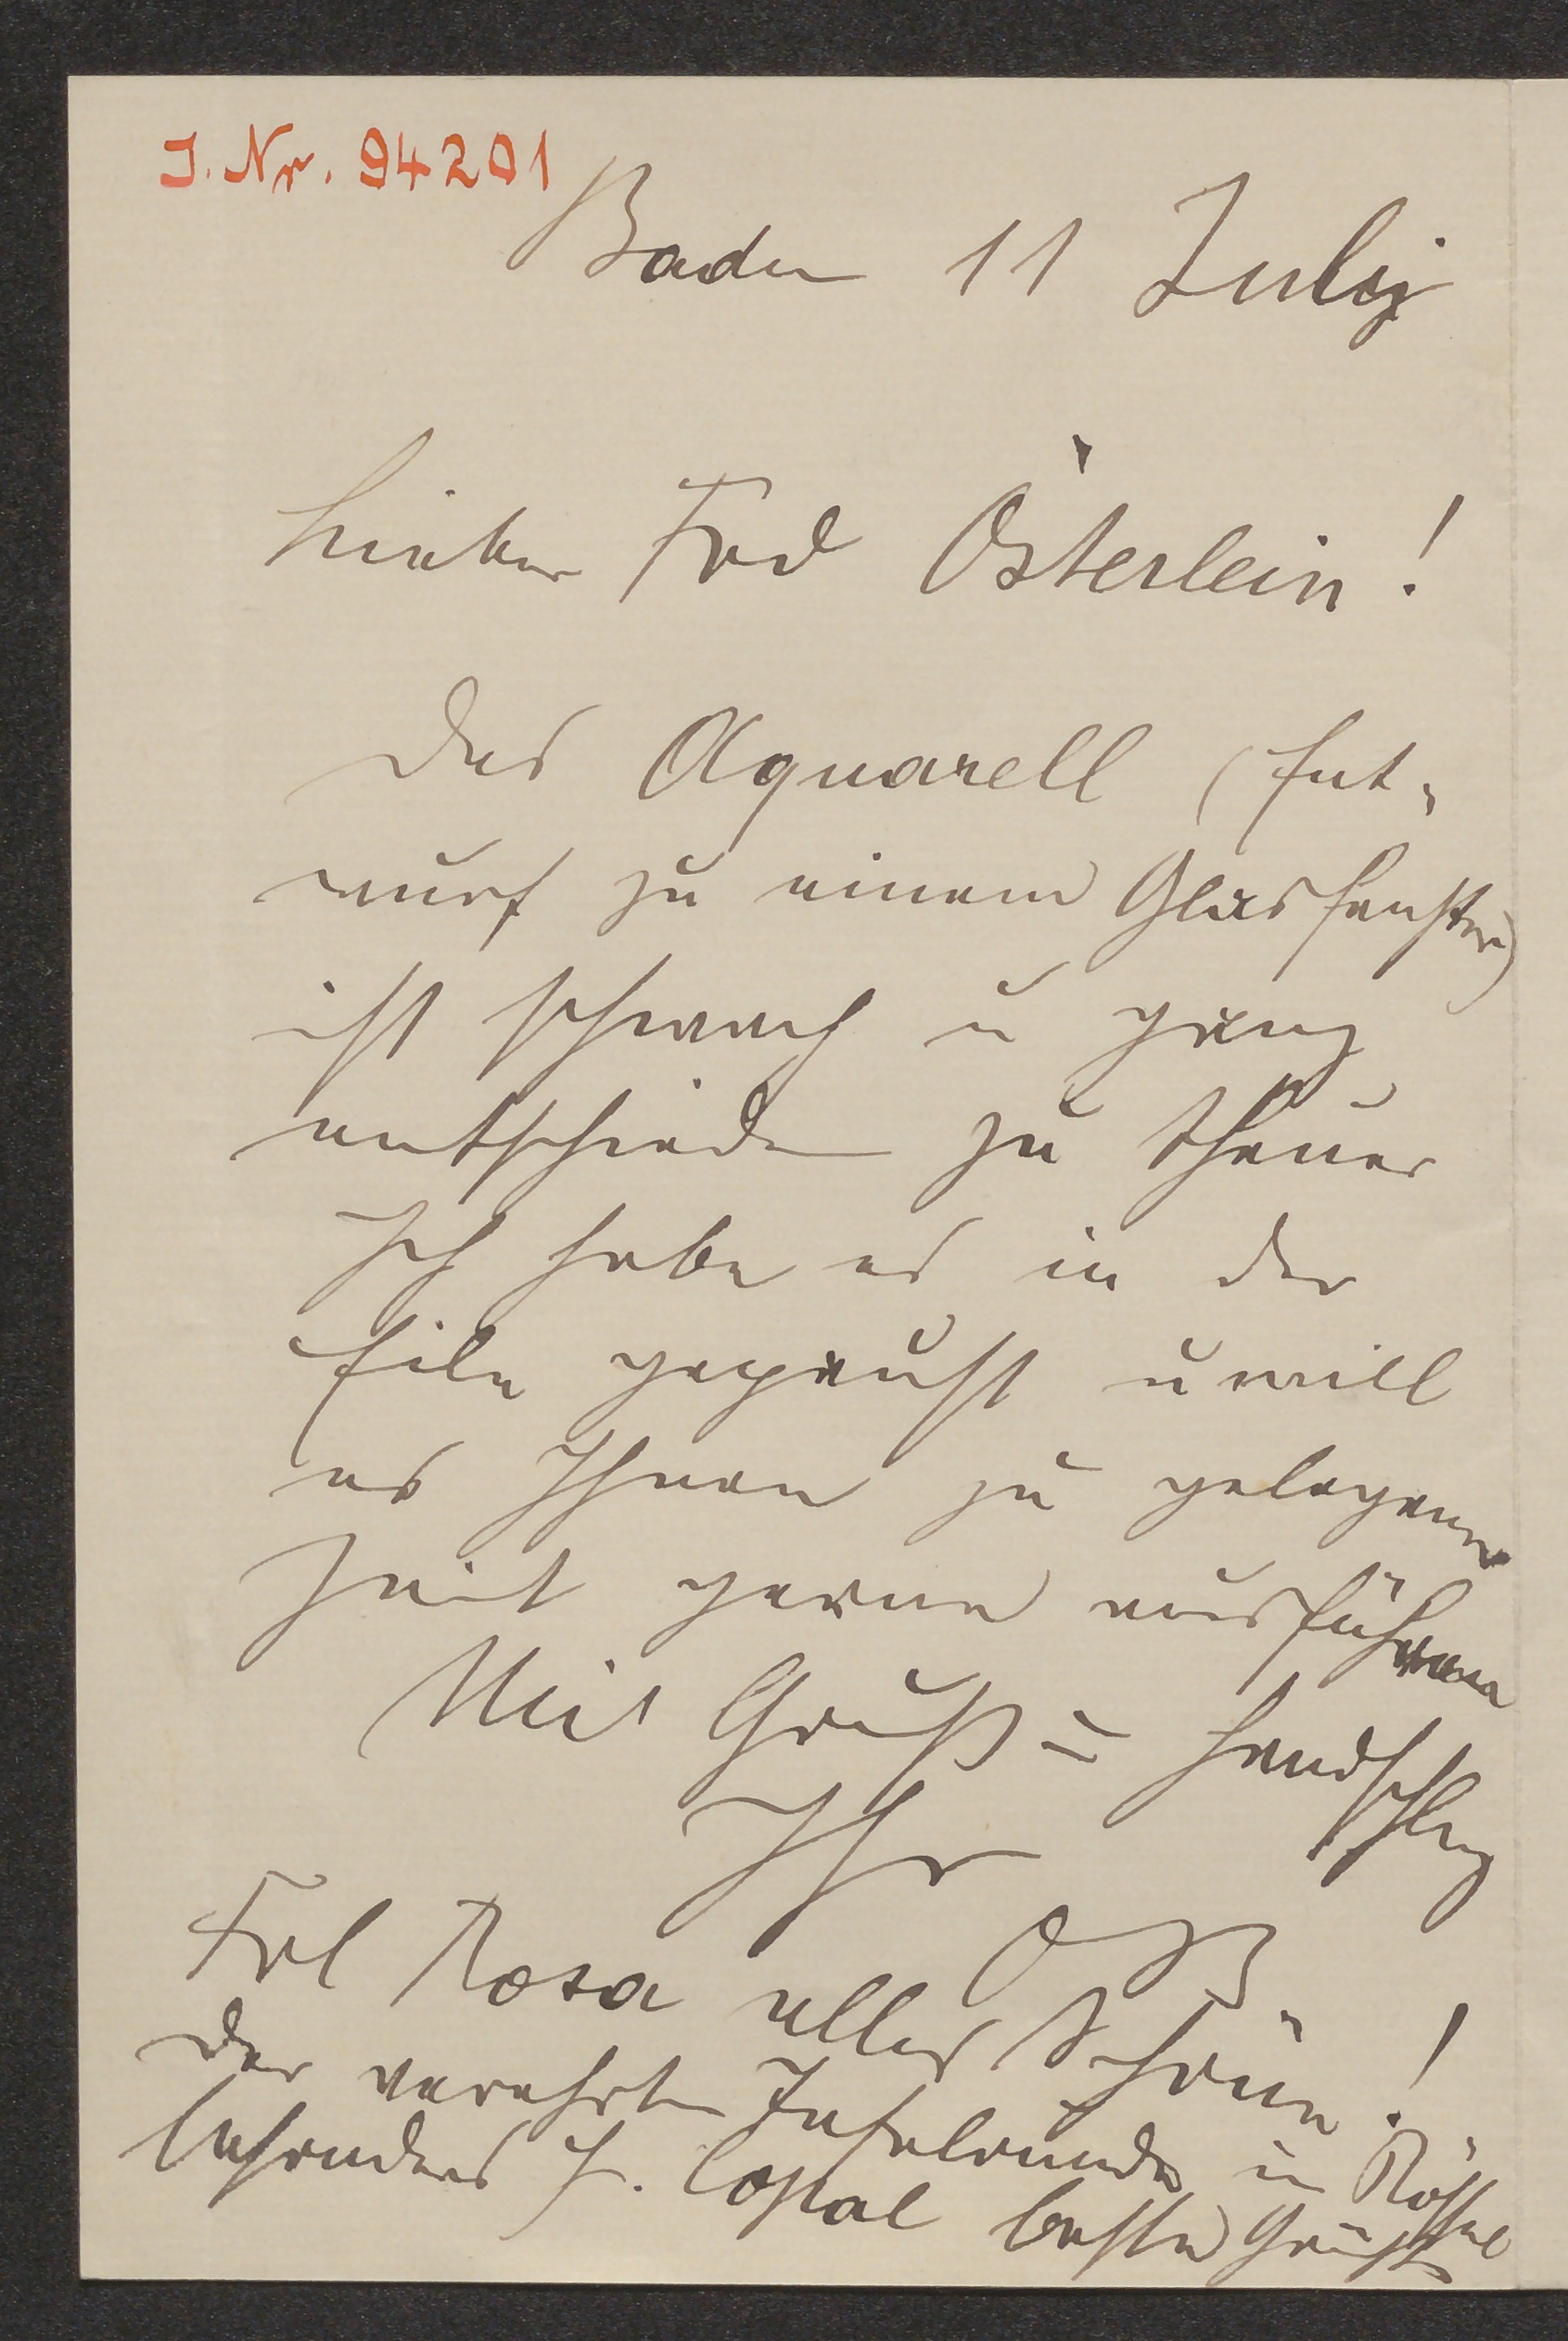 J. Nr. 94201
Baden 11 Julij
Lieber Frd Österlein!
Das Aquarell (Ent„
wurf zu einem Glasfenster)
ist schwach u ganz
entschieden zu theuer
Ich habe es in der
Eile gepaust u will
es Ihnen zu gelegener
Zeit gerne ausführen
Mit Gruß = Handschlag
Ihr
Frl Rosa alles Schöne!
der verehrten Tafelrunde in Rössel
besonders H. Copal beste Grüße